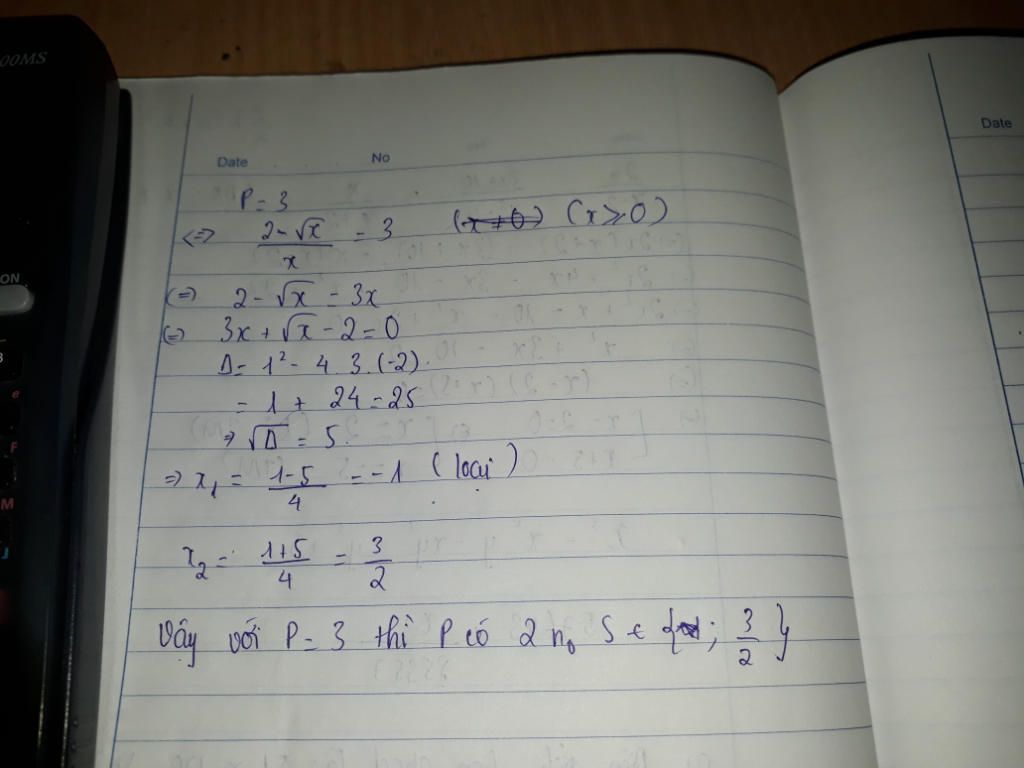 00MS
Date No
Date
P = 3
<=> (2 - √x)/x = 3 (x ≠ 0) (x ⩾ 0)
(=) 2 - √x = 3x
(=) 3x + √x - 2 = 0
Δ = 1² - 4.3.(-2).
= 1 + 24 = 25
→ √Δ = 5.
=> x₁ = (1-5)/4 = -1 (loại)
x₂ = (1+5)/4 = 3/2
Vậy với P = 3 thì P có 2 n₀ S ∈ { ; 3/2 }
ON
e
F
M